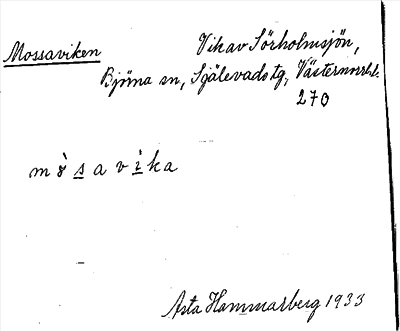 Mossaviken Vik av Sörholmsjön,
Björna sn, Själevads tg, Västernorrl.
270
mò̀s̲avì̲ka
Asta Hammarberg 1933